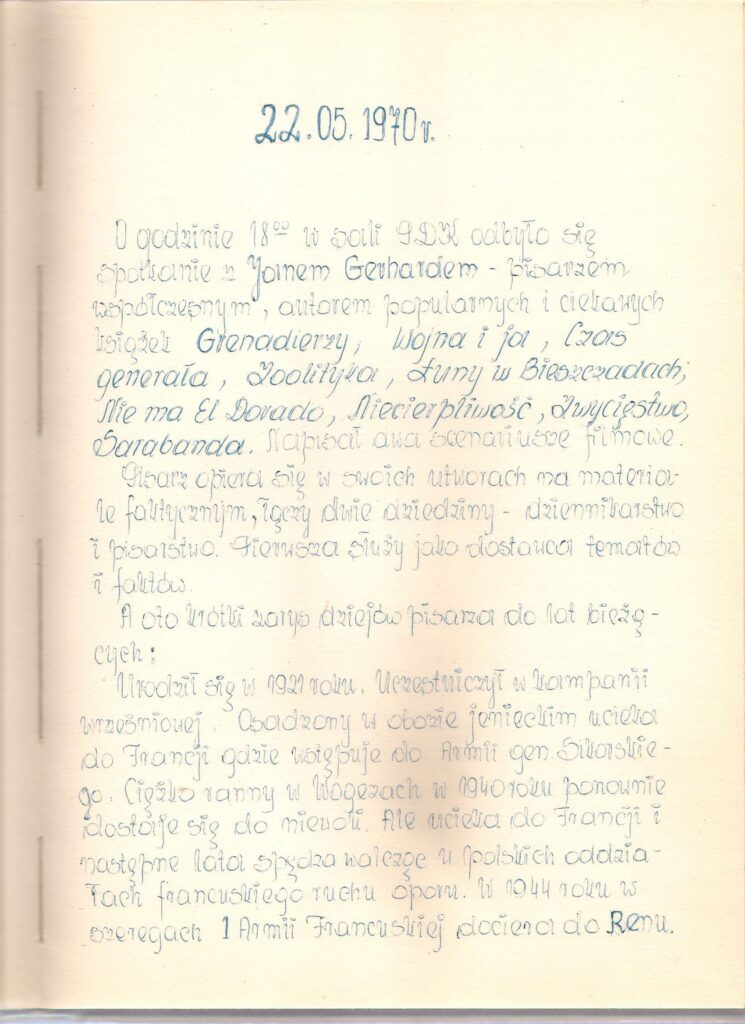 22.05.1970r.
O godzinie 18⁰⁰ w sali GDK odbyło się
spotkanie z Janem Gerhardem - pisarzem
współczesnym, autorem popularnych i ciekawych
książek Grenadierzy, Wojna i ja, Czas
generała, Zoolityka, Łuny w Bieszczadach,
Nie ma El Dorado, Niecierpliwość, Zwycięstwo,
Sarabanda. Napisał dwa scenariusze filmowe.
Pisarz opiera się w swoich utworach na materia-
le faktycznym, łączy dwie dziedziny - dziennikarstwo
i pisarstwo. Pierwsza służy jako dostawca tematów
i faktów.
A oto krótki zarys dziejów pisarza do lat bieżą-
cych:
Urodził się w 1921 roku. Uczestniczył w kampanii
wrześniowej. Osadzony w obozie jenieckim ucieka
do Francji gdzie wstępuje do Armii gen. Sikorskie-
go. Ciężko ranny w Wogezach w 1940 roku ponownie
dostaje się do niewoli. Ale ucieka do Francji i
następne lata spędza walcząc w polskich oddzia-
łach francuskiego ruchu oporu. W 1944 roku w
szeregach 1 Armii Francuskiej dociera do Renu.